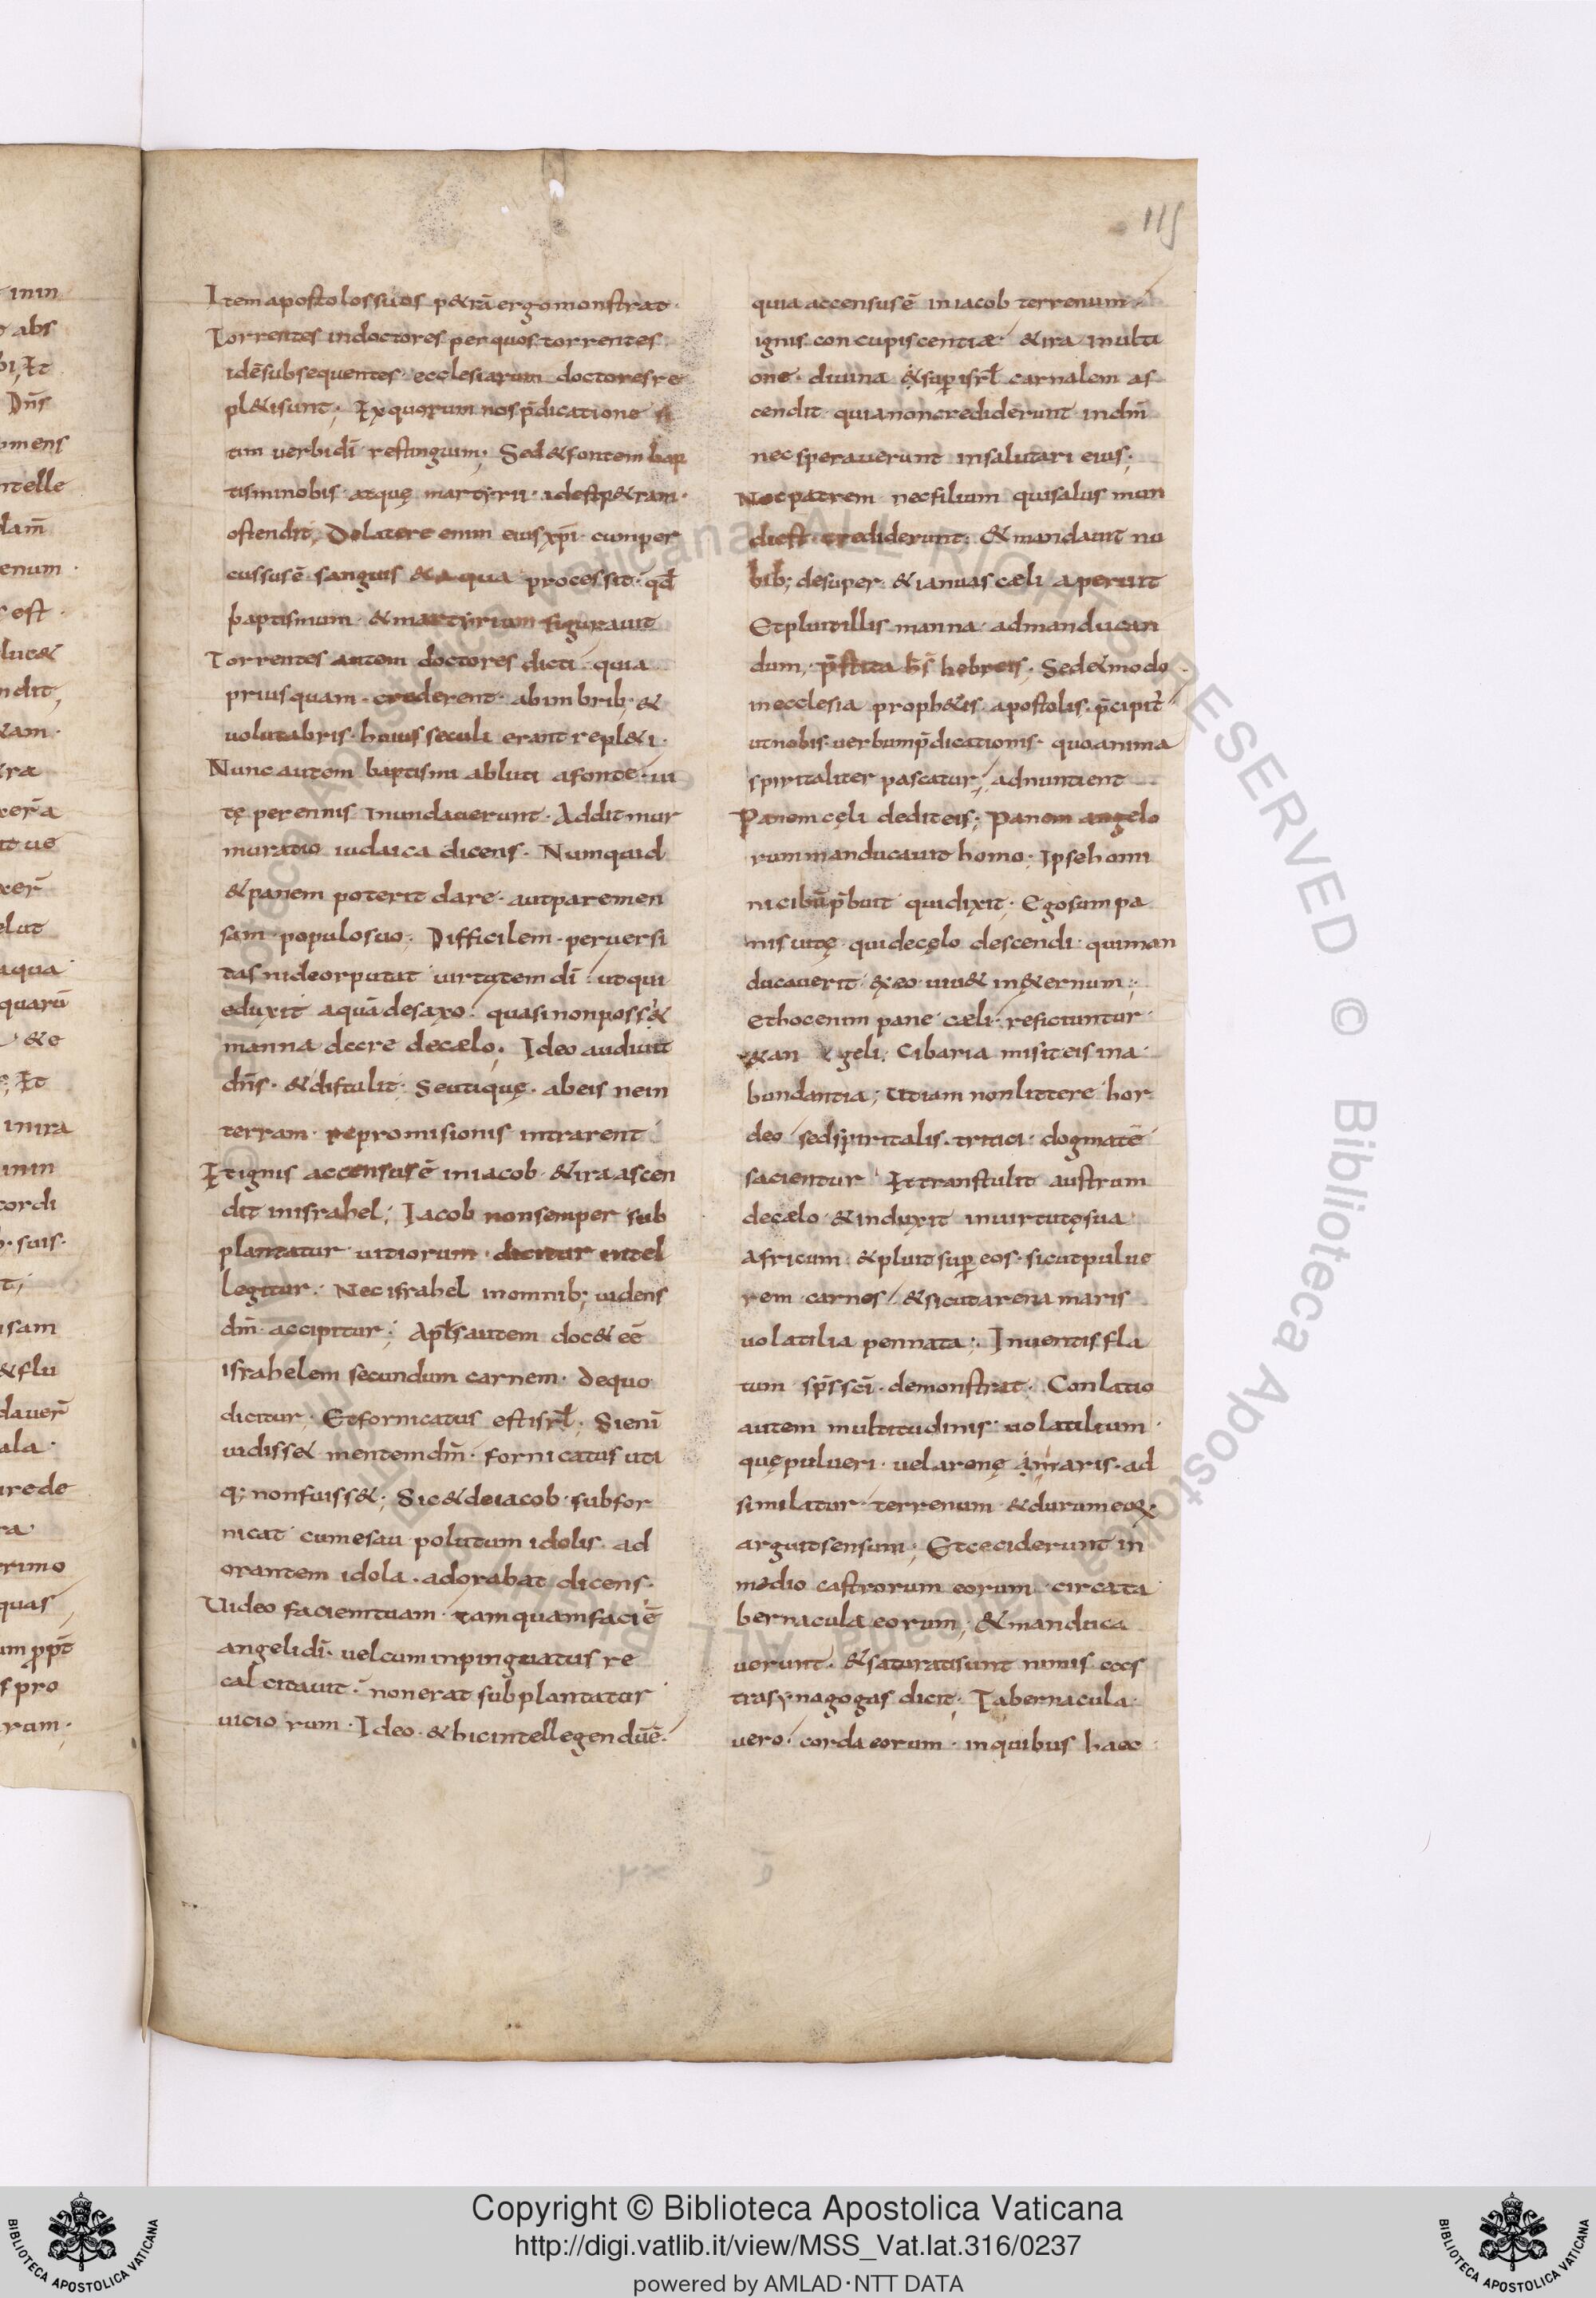 115
Item apostolos suos p&rā ergo monstrat·
Torrentes in doctores per quos torrentes
idē subsequentes· ecclesiarum doctores re
pl&i sunt; Ex quorum nos p̄dicatione si
tim verbi dī restinguim; Sed & fontem bap
tismi nobis atquę martyrii· id est p&ram·
ostendit; De latere enim eius xp̄i· cum per
cussus ē sanguis & aqua processit· qd̄
baptismum & martyrium figuravit
Torrentes autem doctores dicti quia
prius quam· crederent· ab imbrib; &
volutabris· huius seculi erant repl&i·
Nunc autem baptismi abluti a fonte· vi
tę perennis inundaverunt· Addit mur
muratio iudaica dicens· Numquid
& panem poterit dare· aut parare men
sam· populo suo· Difficilem· perversi
tas videor putat virtutem dī· ut qui
eduxit aquā de saxo· quasi non poss&
manna dare de cælo; Ideo audivit
dn̄s· & distulit; Seutiquę· ab eis ne in
terram· repromisionis intrarent·
Et ignis accensus ē in iacob· & ira ascen
dit in israhel; Iacob non semper sub
plantatur vitiorum· dicitur intel
legitur· Nec israhel in omnib; videns
dm̄· accipitur; Apl̄s autem doc& eē
israhelem secundum carnem· de quo
dicitur· Et fornicatus est isrl̄; Si enī
vidiss& mentem dm̄· fornicatus uti
q; non fuiss&; Sic & de iacob· subfor
nicat cum esau polutum idolis· ad
orantem idola· adorabat dicens·
Video faciem tuam· tam quam faciē
angeli dī· vel cum inpinguatus re
calcitavit· non erat subplantatur
vicio rum· Ideo & hic intellegendū ē·
quia accensus ē in iacob terrenum
ignis concupiscentiæ· & ira in ulti
one· divina & sup isrl̄ carnalem as
cendit quia non crediderunt in dm̄
nec speraverunt in salutari eius;
Nec patrem nec filium qui salus mun
di est crediderunt· & mandavit nu
bib; desuper & ianuas cæli aperuit
Et pluit illis manna ad manducan
dum; p̄stita hs̄ hebreis; Sed & modo
in ecclesia proph&is· apostolis· p̄cipit
ut nobis verbum p̄dicationis· quo anima
spiritaliter pascatur; adnuntient
Panem cęli dedit eis; Panem angelo
rum manducavit homo; Ipse homi
ni cibū p̄buit qui dixit; Ego sum pa
nis vitę qui de cęlo descendi· qui man
ducaverit ex eo viv& in &ernum;
et hoc enim pane cæli· reficiuntur
& an geli; Cibaria misit eis in a
bundantia; Ut iam non littere hor
deo sed spiritalis· tritici· dogmate
sacientur Et transtulit austrum
de cælo & induxit in virtutę sua
africum & pluit sup eos· sicut pulve
rem carnes· & sicut arena maris
volatilia pennata; In ventis fla
tum sp̄s sc̄i· demonstrat· Conlatio
autem multitudinis· volatilium·
quę pulveri· vel arenę maris· ad
similatur· terrenum & durum eoꝝ·
arguit sensum; Et ceciderunt in
medio castrorum eorum circa ta
bernacula eorum; & manduca
verunt· & saturati sunt nimis
tra synagogas dicit; Tabernacula·
vero· corda eorum· in quibus haec
Copyright © Biblioteca Apostolica Vaticana
http://digi.vatlib.it/view/MSS_Vat.lat.316/0237
powered by AMLAD·NTT DATA
BIBLIOTECA APOSTOLICA VATICANA
BIBLIOTECA APOSTOLICA VATICANA